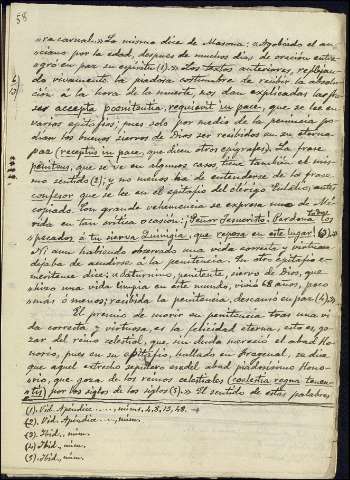 58
»ra carnal.» Lo mismo dice de Masona: «Agobiado el an-
ciano por la edad, despues de muchos dias de oracion entre-
gó en paz su espíritu (1).» Los textos anteriores, reflejan-
do vivamente la piadosa costumbre de recibir la absolu-
ción á la hora de la muerte, nos dan explicadas las fra-
ses accepta poenitentia, requievit in pace, que se leen en
varios epitafios; pues solo por medio de la penitencia po-
dian los buenos siervos de Dios ser recibidos en su eterna
paz (receptus in pace, que dicen otros epígrafes). La frase
penitens, que se ve en algunos casos tiene tambien el mis-
mo sentido (2); y no menos ha de entenderse de la frase
confesor que se lee en el epitafio del clérigo Eulalio, antes
copiado. Con gran vehemencia se expresa una de Mé-
rida en tan crítica ocasion: ¡Señor Jesucristo! Perdona todos los
pecados á tu sierva Quinigia, que reposa en este lugar! (3)»
Ni aun habiendo observado una vida correcta y virtuosa
dejaba de acudirse á la penitencia. En otro epitafio e-
meritense dice: «Saturnino, penitente, siervo de Dios, que
»hizo una vida limpia en este mundo, vivió 68 años, poco
»más ó menos; recibida la penitencia, descansó en paz (4).»
El premio de morir en penitencia tras una vi-
da correcta y virtuosa, es la felicidad eterna, esto es, go-
zar del reino celestial, que sin duda mereció el abad Ho-
norio, pues en su epitafio, hallado en Fregenal, se dice
que aquel estrecho sepulcro es del abad piadosísimo Hono-
rio, que goza de los reinos celestiales (coelestia regna tenen-
tis) por los siglos de los siglos (5).» El sentido de estas palabras
(1). Vid. Apéndice ....., núms. 4, 8, 15, 48.
(2). Vid. Apéndice ....., núm.
(3). Ibid., núm.
(4). Ibid., núm.
(5). Ibid., núm.